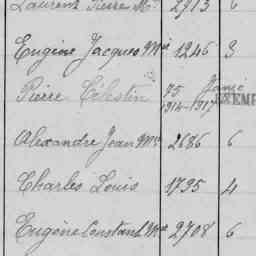 Laurent Pierre Mie 2913 6
Eugène Jacques Mie 1246 3
Pierre Célestin 75 1914-1917 EXEMP
Alexandre Jean Mie 2686 6
Charles Louis 1795 4
Eugène Constant Mie 2708 6